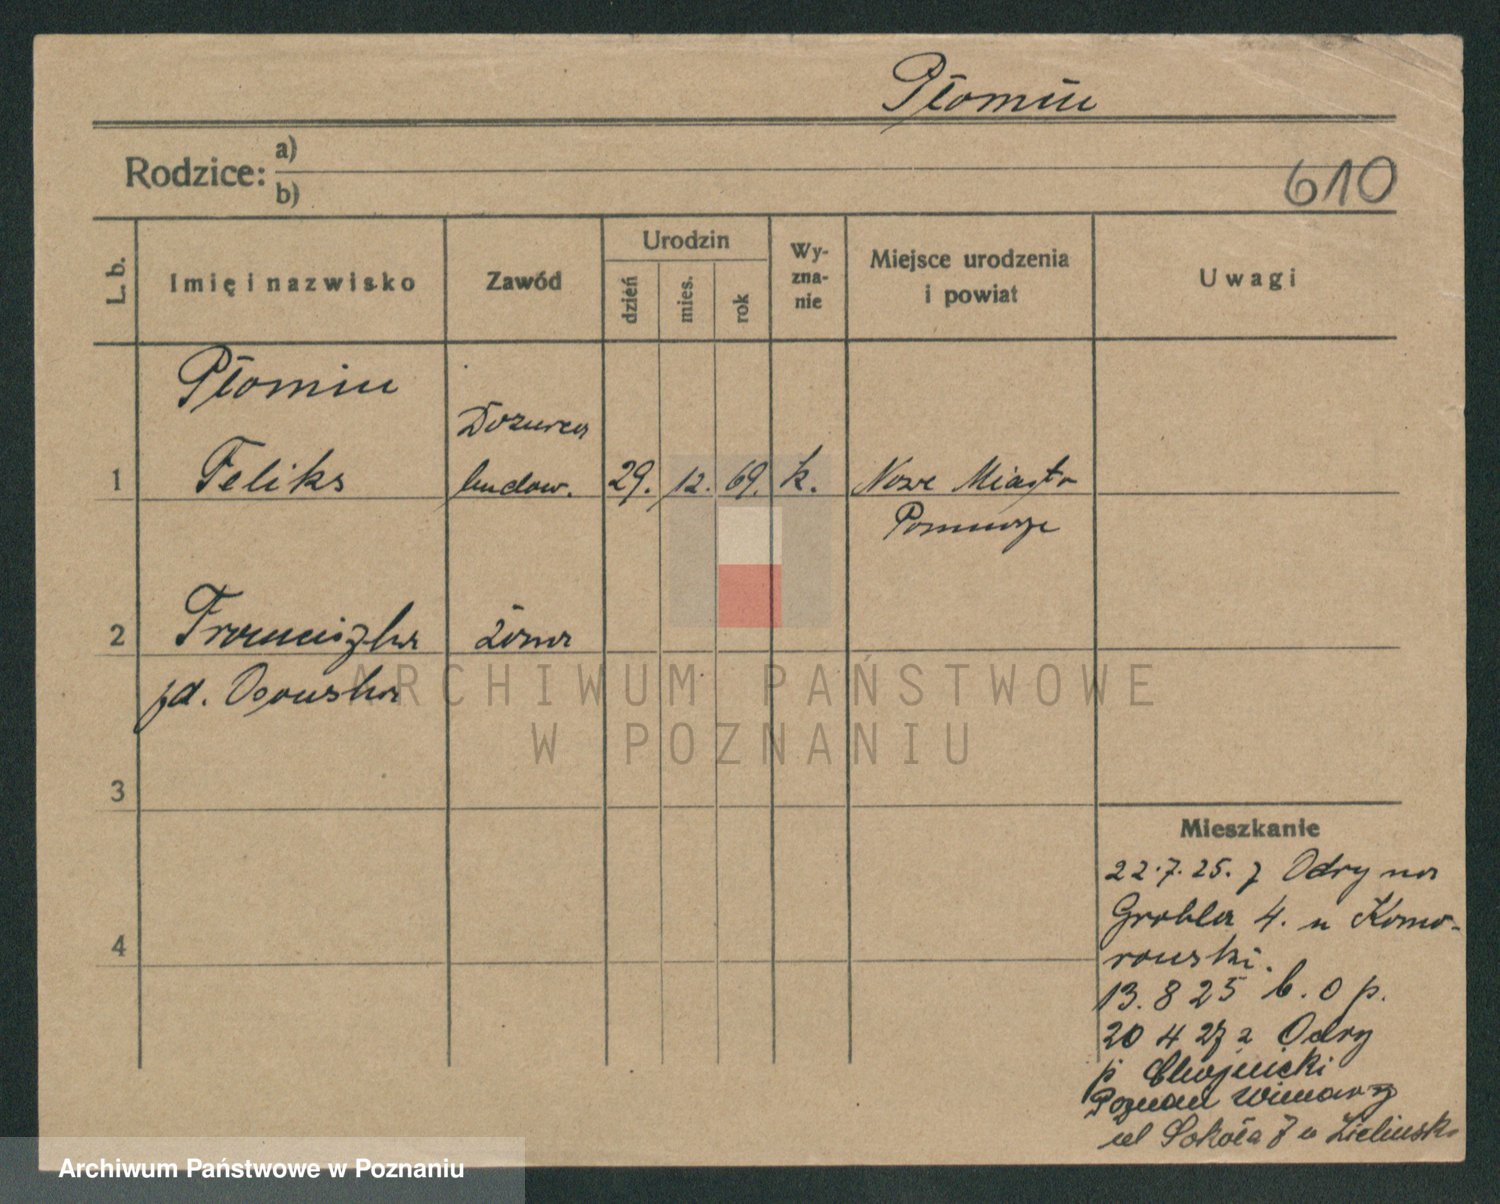 Płomin
Rodzice: a)
b)
610
L. b.
Imię i nazwisko
Zawód
Urodzin
dzień
mies.
rok
Wy-
zna-
nie
Miejsce urodzenia
i powiat
Uwagi
Płomin
Dozorca
1 Feliks budow. 29. 12. 69. k. Nowe Miasto
Pomorze
2 Franciszka żona
zd. Osowska
3
4
Mieszkanie
22.7.25. z Odry na
Grobla 4. u Komo-
rowski.
13.8 25 b. o p.
20 4 27 z Odry
p Chojnicki
Poznań Winiary
ul Sokoła 7 u Zielinsk
ARCHIWUM PAŃSTWOWE
W POZNANIU
Archiwum Państwowe w Poznaniu